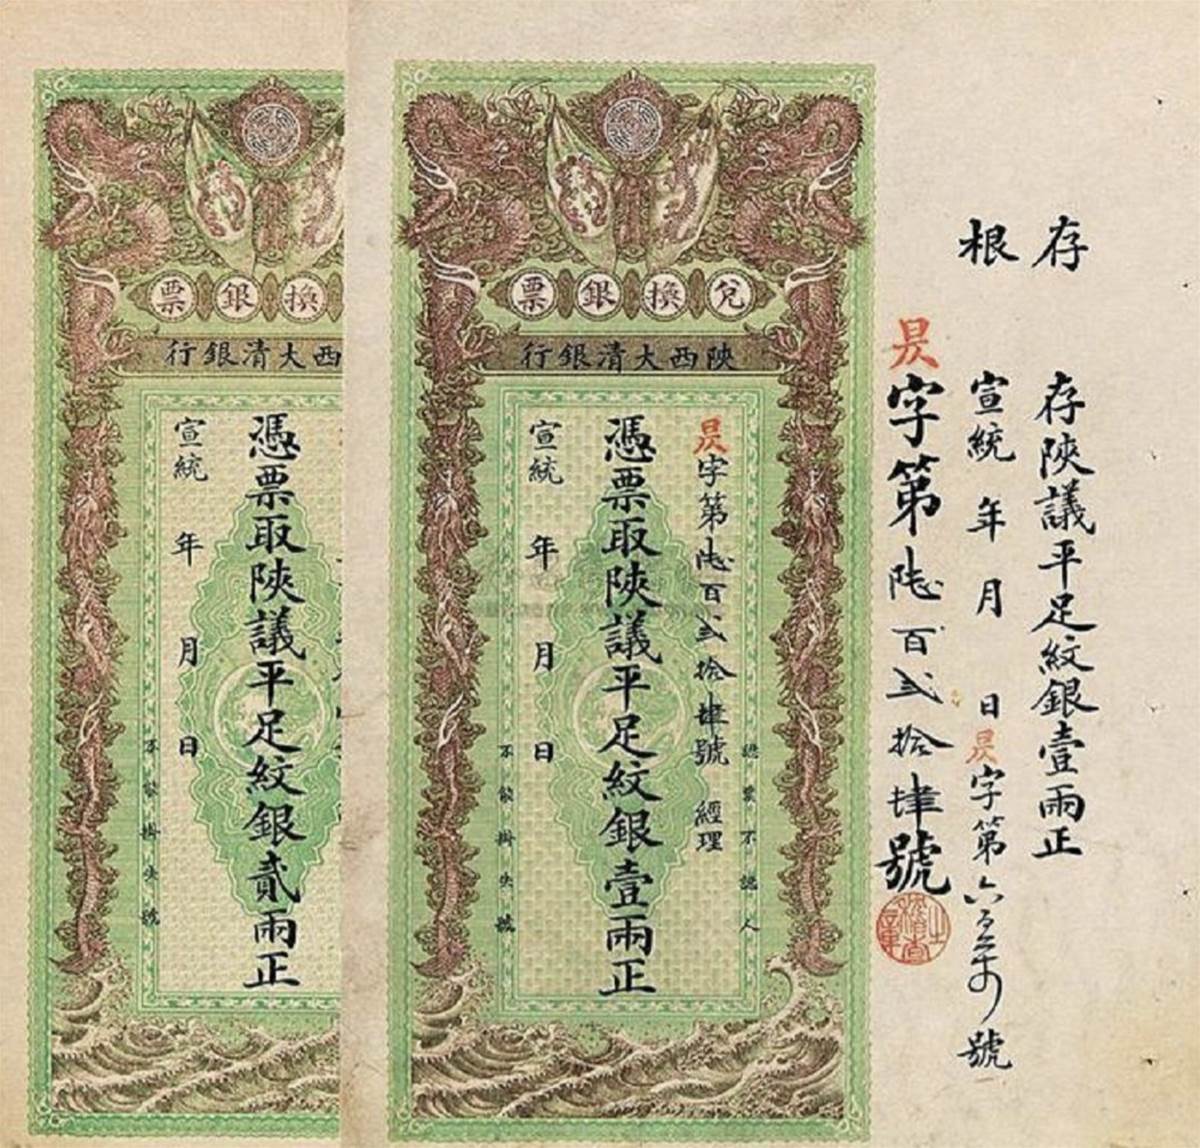 存根
存陝議平足紋銀壹兩正
宣統 年 月 日 昃字第六百 號
昃字第陸百弍拾肆號
兌換銀票
陝西大清銀行
認票不認人
昃字第陸百弍拾肆號 經理
憑票取陝議平足紋銀壹兩正
宣統 年 月 日
不能掛失號
換銀票
西大清銀行
憑票取陝議平足紋銀貳兩正
宣統 年 月 日
不能掛失號